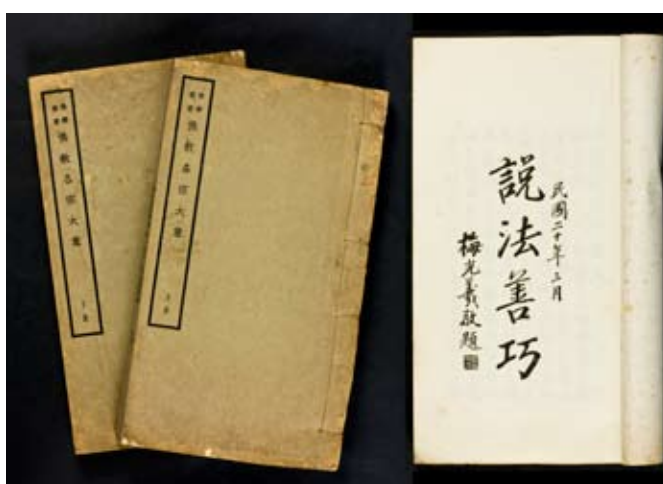 佛教各宗大意
下集
佛教各宗大意
上集
民國二十年三月
説法善巧
梅光羲敬題